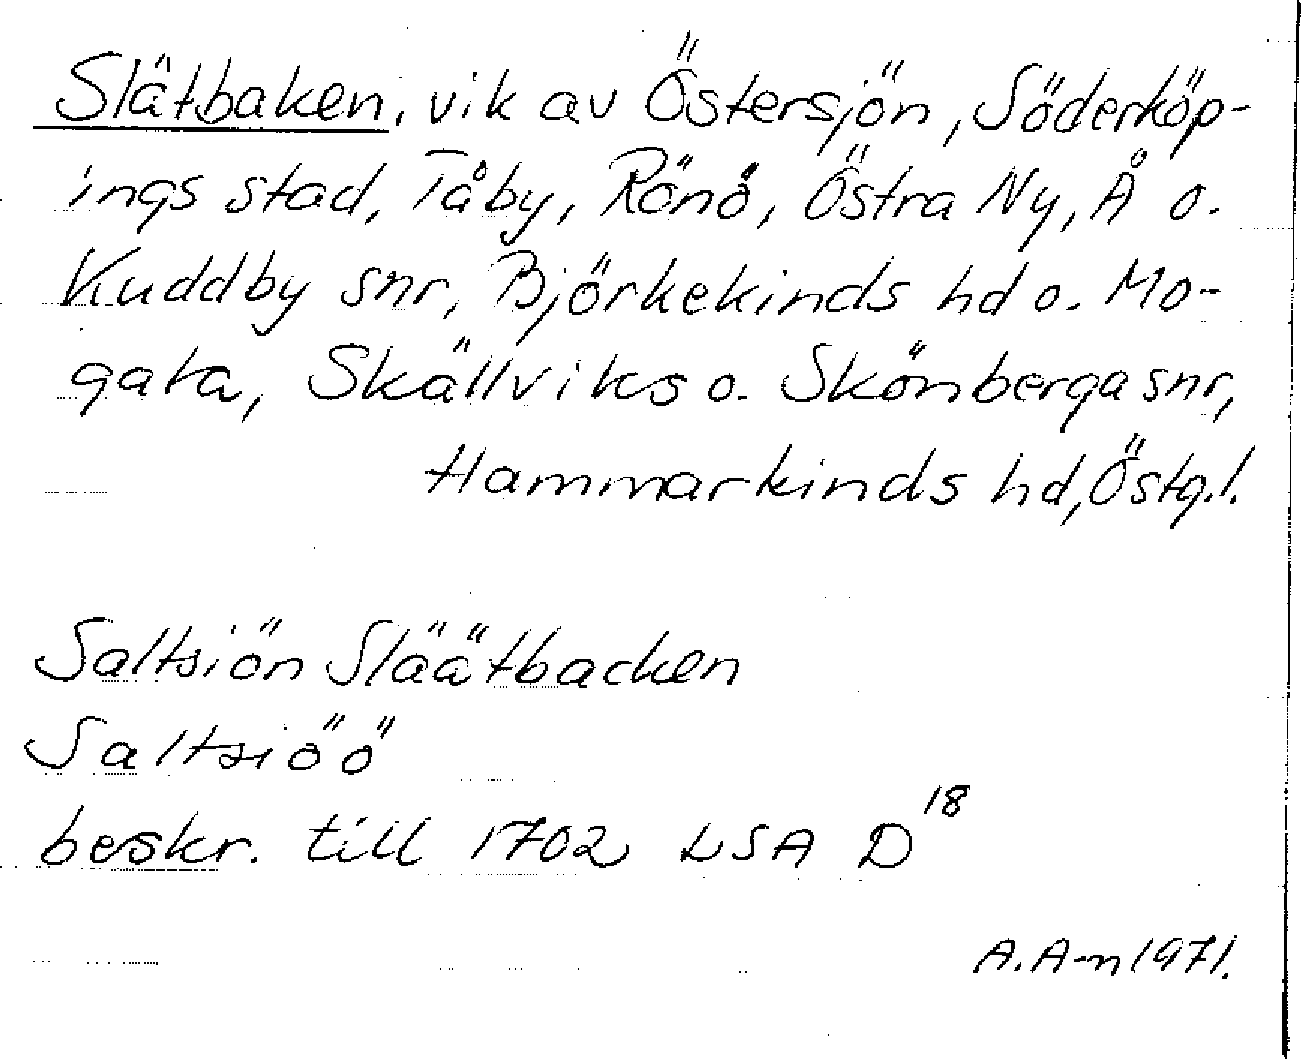 Slätbaken, vik av Östersjön, Söderköp-
ings stad, Tåby, Rönö, Östra Ny, Å o.
Kuddby snr, Björkekinds hd o. Mo-
gata, Skällviks o. Skönberga snr,
Hammarkinds hd, Östg.l.
Saltsiön Släätbacken
Saltsiöö
beskr. till 1702 LSA D18
A.A-n 1971.